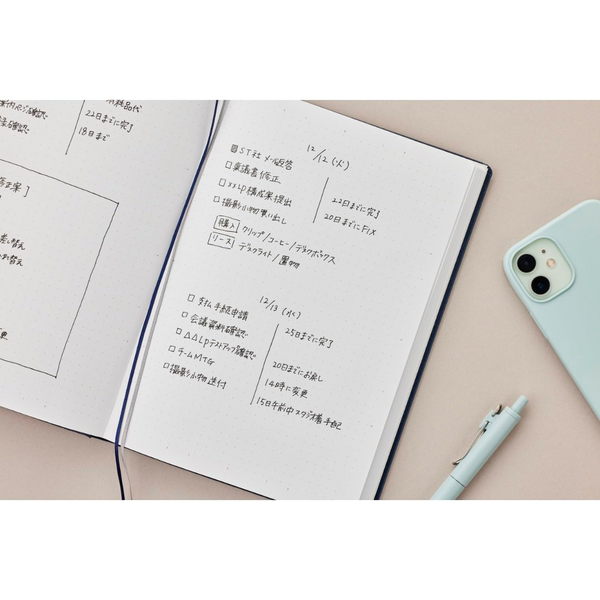 化粧品代
22日までに完了
18日まで
更
12/12(火)
ST社 メール返答
稟議書修正
××LP構成案提出
22日までに完了
撮影小物買い出し
20日までにFIX
購入 クリップ/コーヒー/デスクボックス
リース デスクライト/置物
12/13(水)
支払手続申請
25日までに完了
会議資料確認
△△LPテストアップ確認
20日までにお戻し
チームMTG
14時に変更
撮影小物送付
15日午前中スタジオ着手配